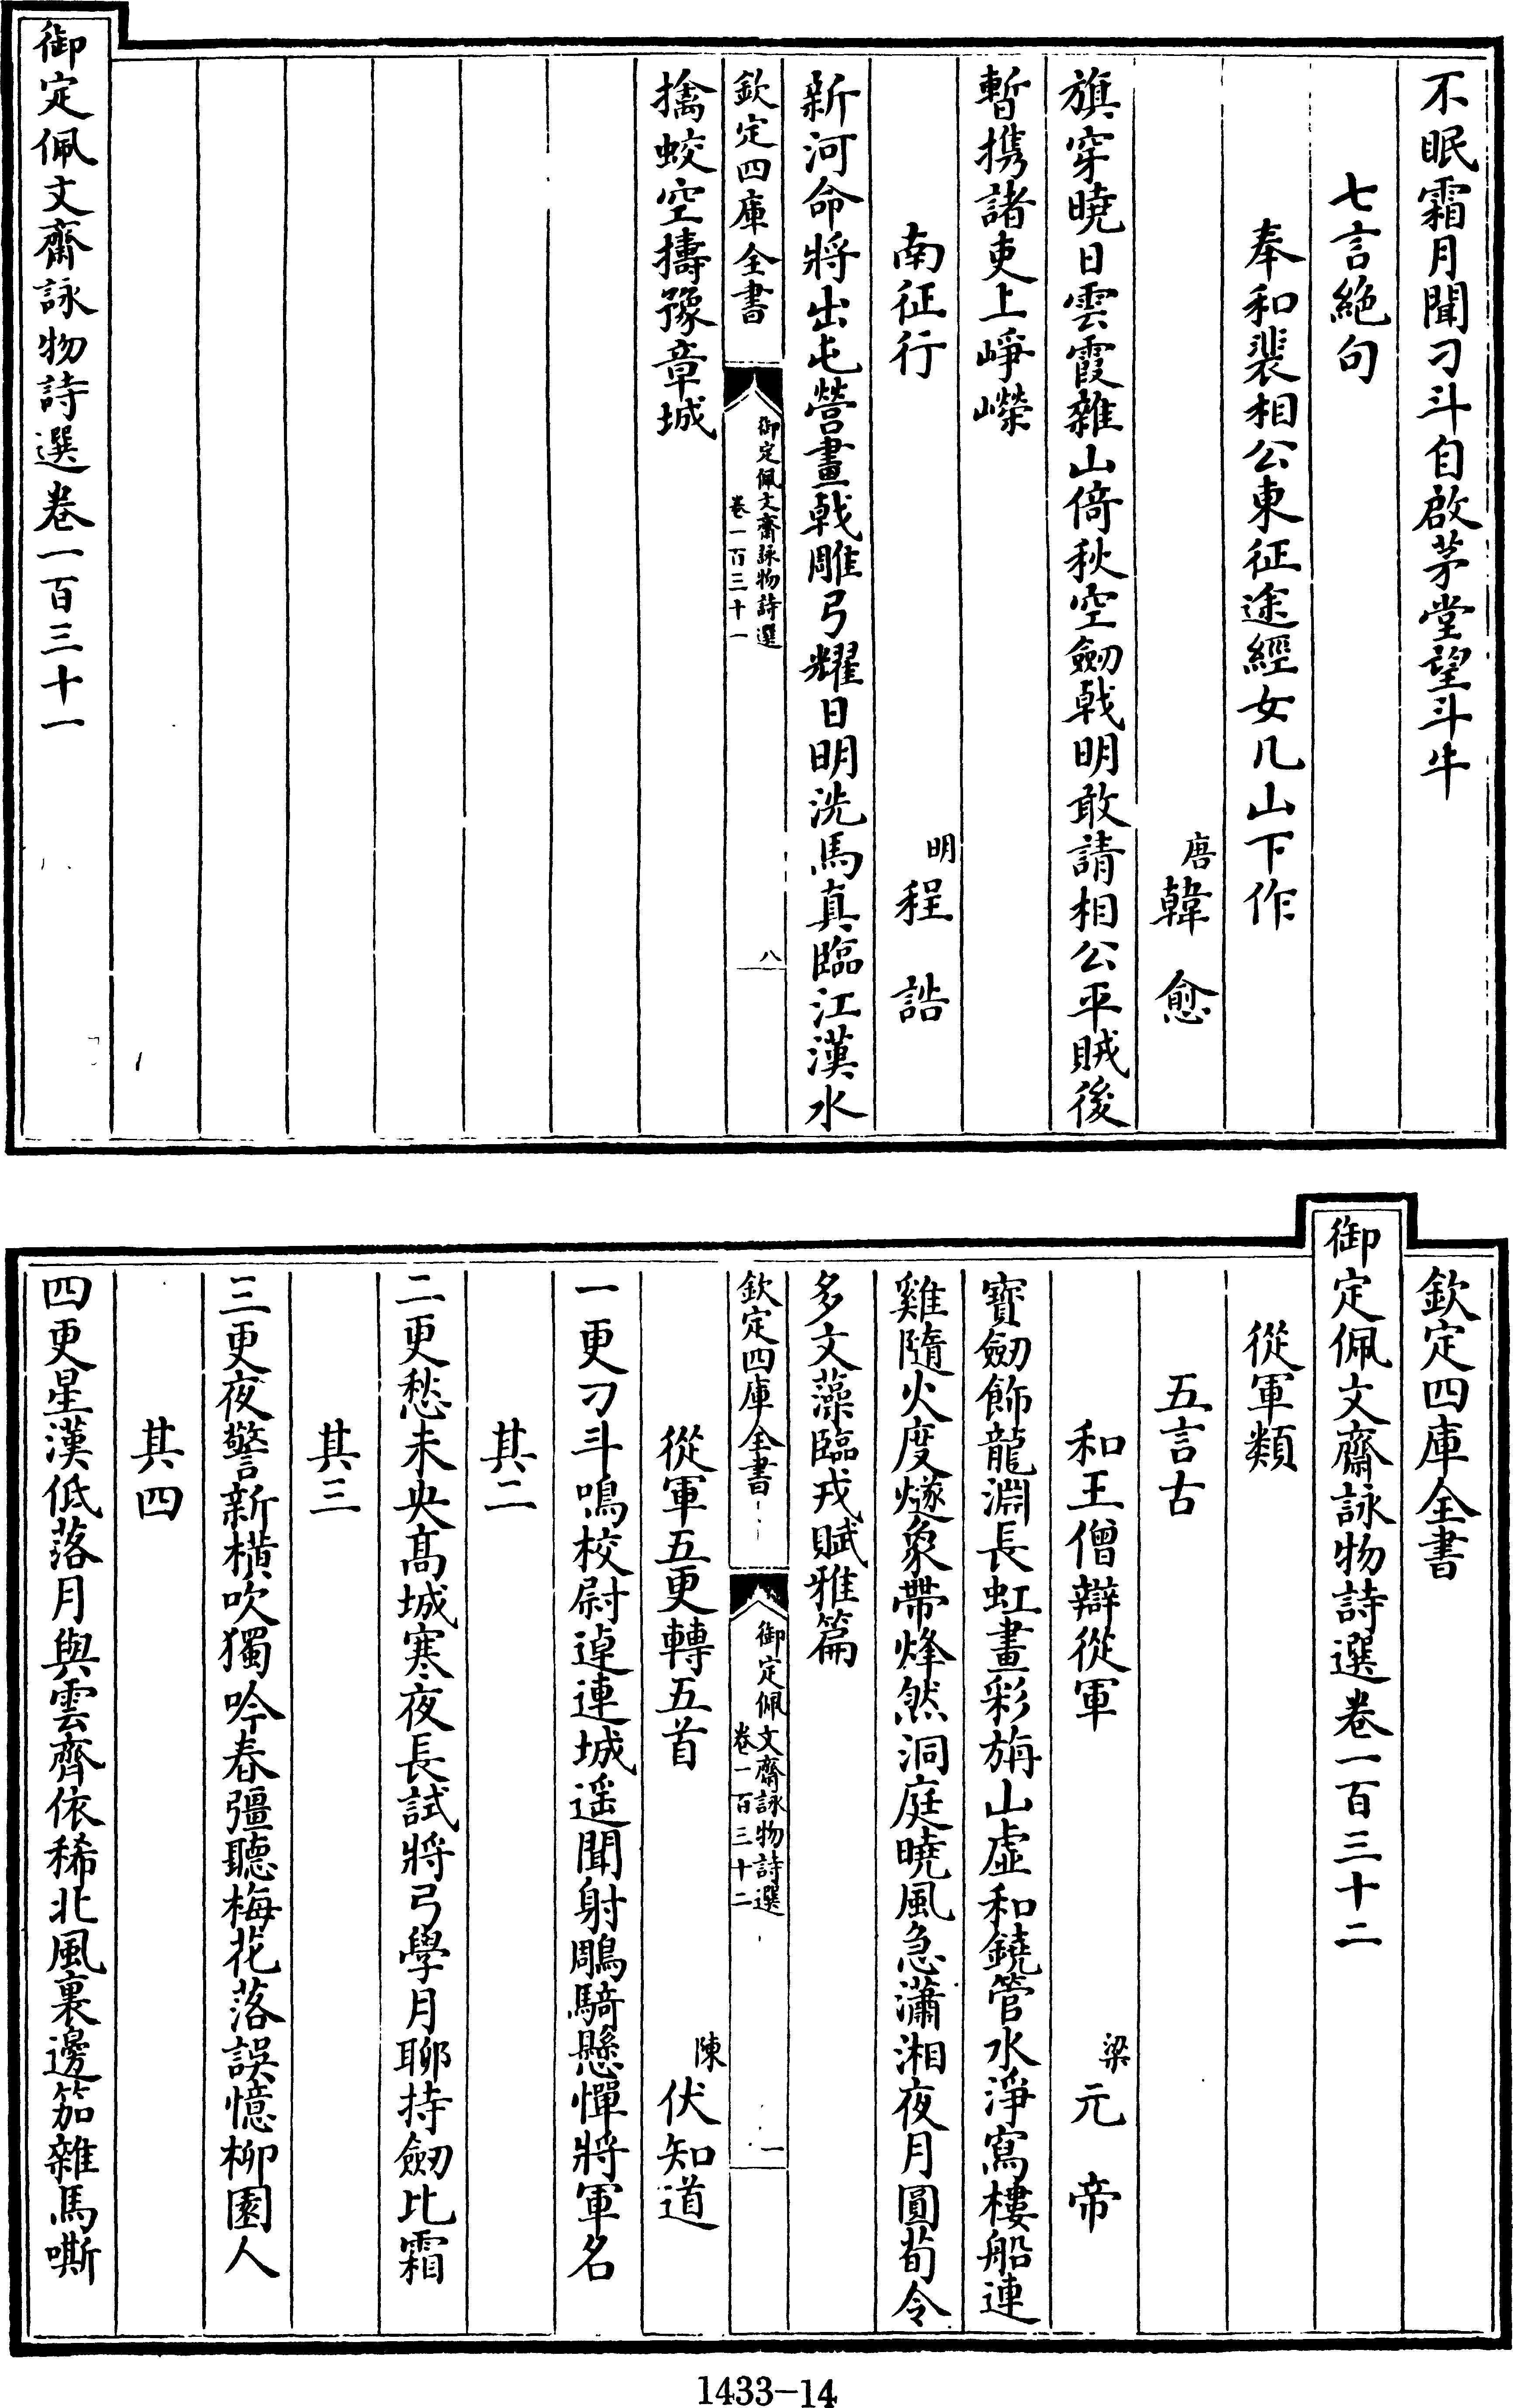 不眠霜月聞刁斗自啟茅堂望斗牛
七言絶句
奉和裴相公東征途經女几山下作
唐韓愈
旗穿曉日雲霞雜山倚秋空劒戟明敢請相公平賊後
暫攜諸吏上崢嶸
南征行
明程誥
新河命將出屯營畫戟雕弓耀日明洗馬真臨江漢水
欽定四庫全書
御定佩文齋詠物詩選
卷一百三十一
八
擒蛟空擣豫章城
御定佩文齋詠物詩選卷一百三十一
欽定四庫全書
御定佩文齋詠物詩選卷一百三十二
從軍類
五言古
和王僧辯從軍
梁元帝
寶劒飾龍淵長虹畫彩旃山虛和鐃管水淨寫樓船連
雞隨火度燧象帶烽然洞庭曉風急瀟湘夜月圓荀令
多文藻臨戎賦雅篇
欽定四庫全書
御定佩文齋詠物詩選
卷一百三十二
一
從軍五更轉五首
陳伏知道
一更刁斗鳴校尉逴連城遥聞射鵰騎懸憚將軍名
其二
二更愁未央髙城寒夜長試將弓學月聊持劒比霜
其三
三更夜警新横吹獨吟春彊聽梅花落誤憶柳園人
其四
四更星漢低落月與雲齊依稀北風裏邊笳雜馬嘶
1433-14